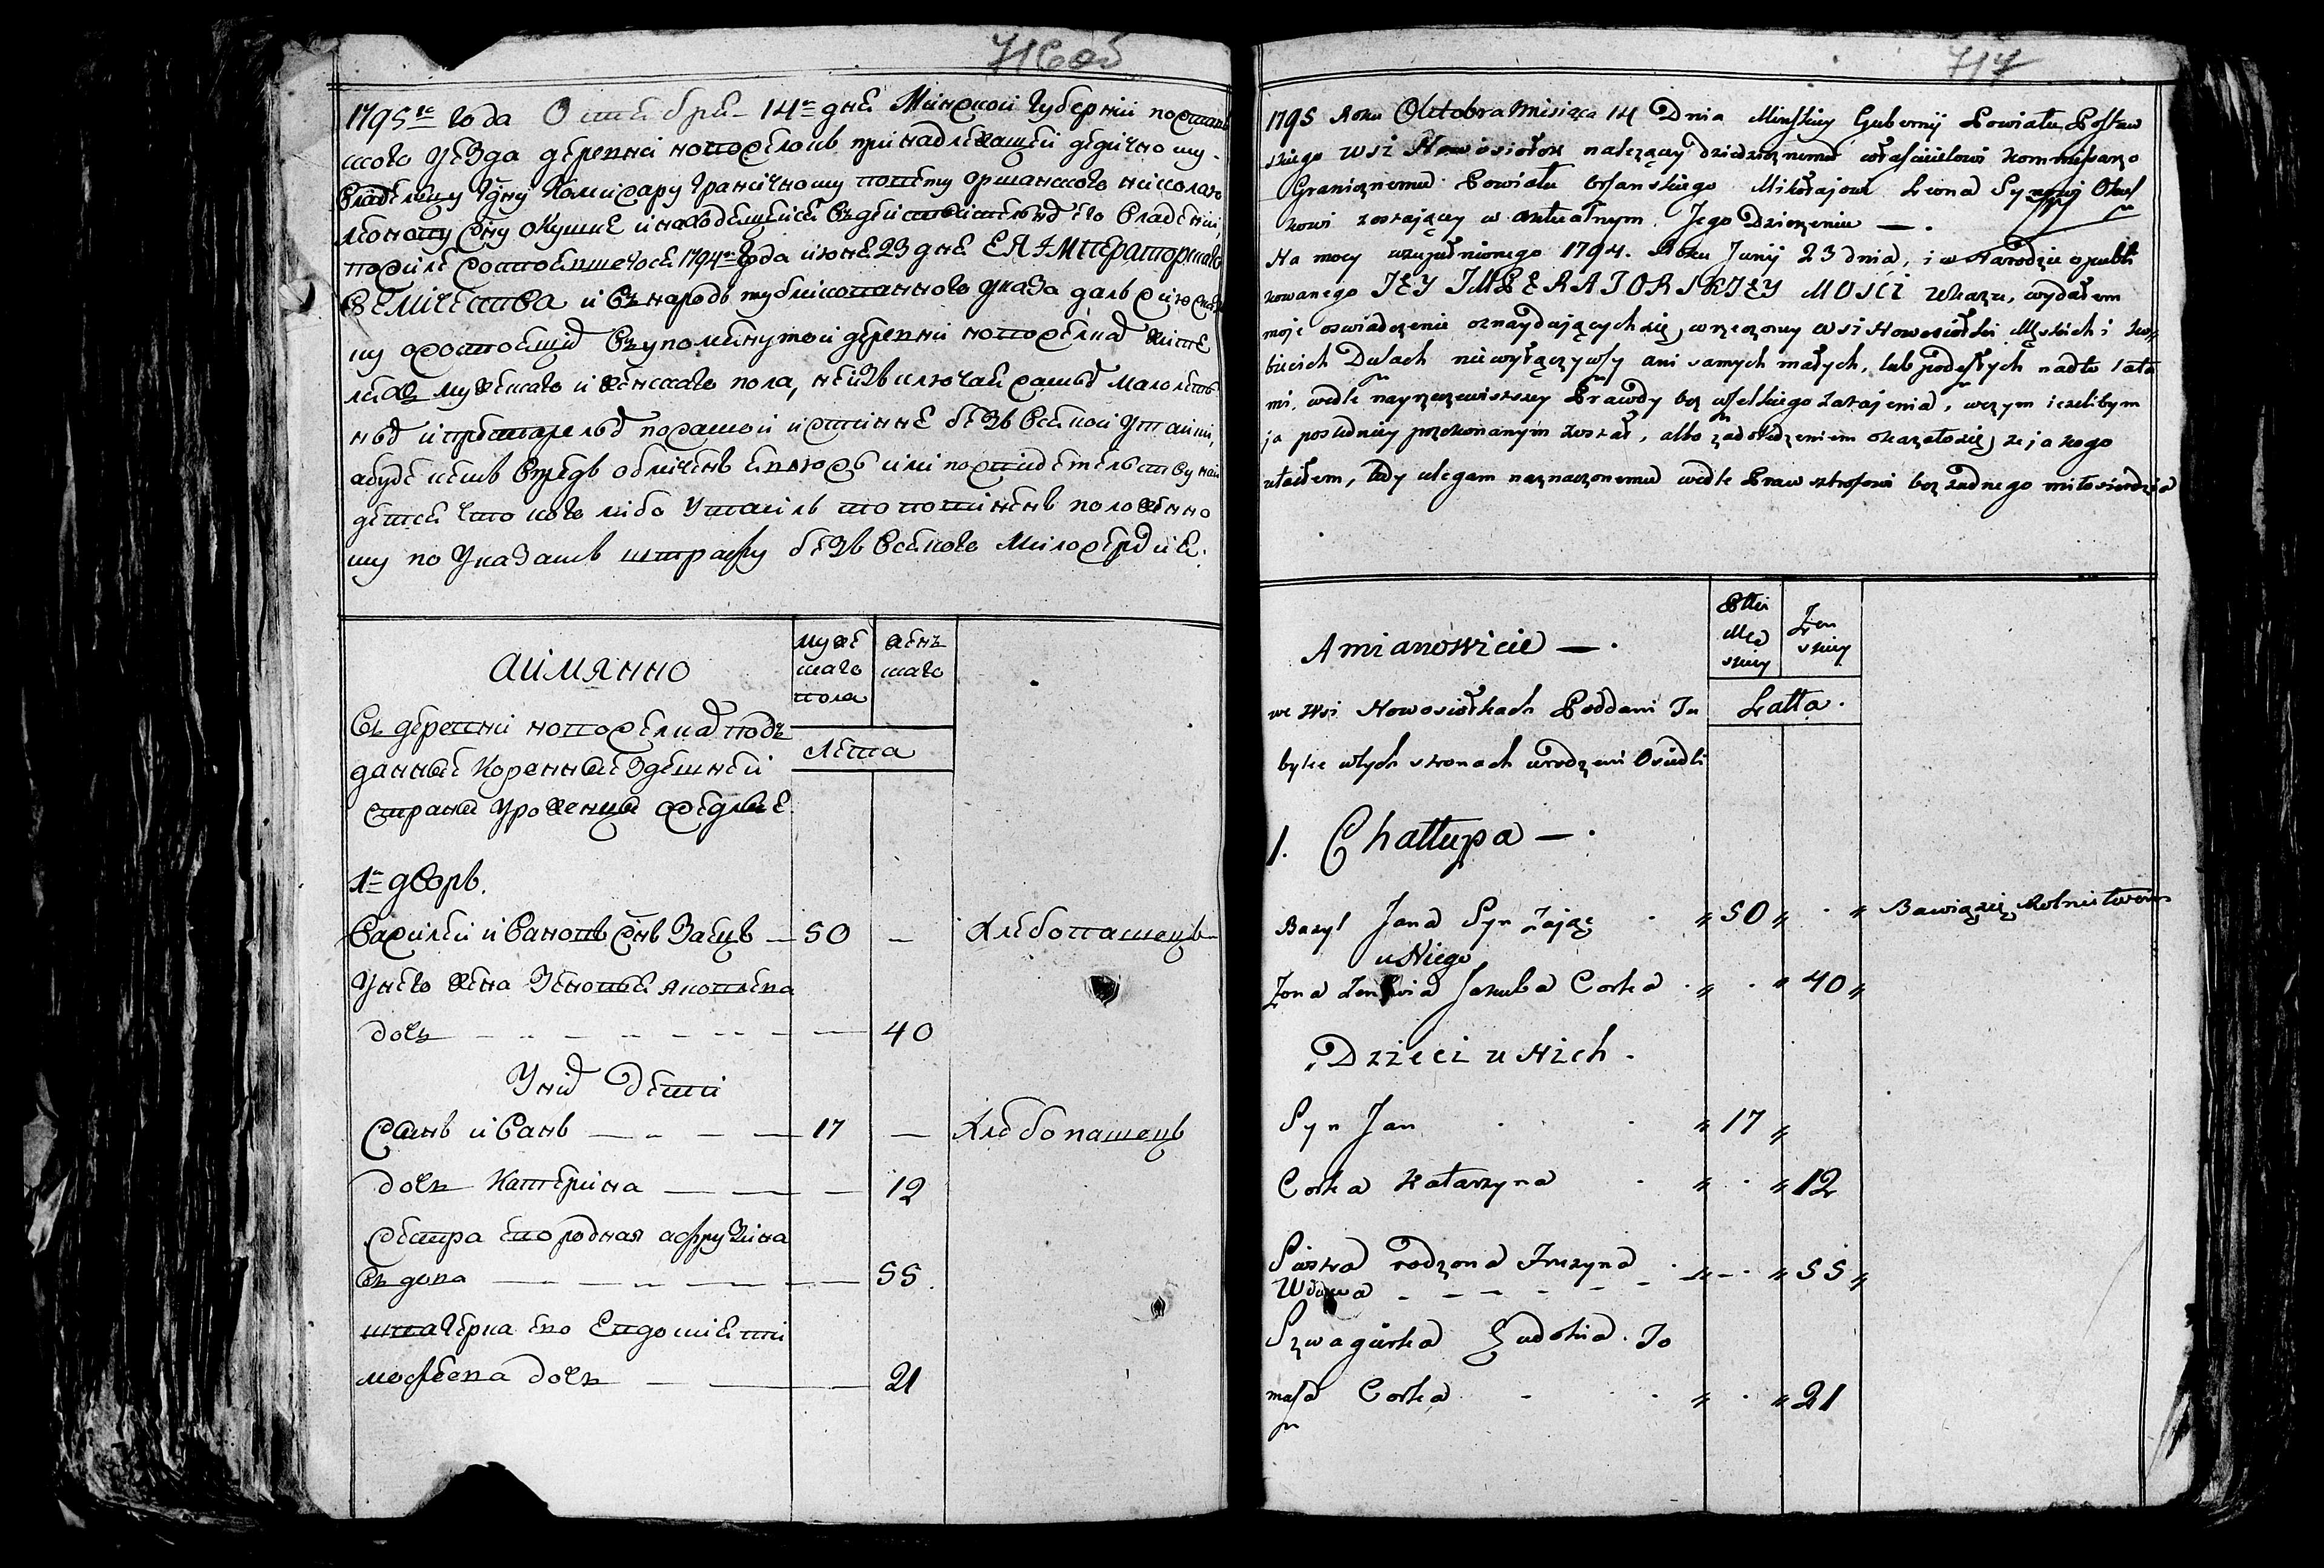 716об
1795го года Октября 14го дня Минской Губернии постав
ского уезда деревни новоселокъ принадлежащей дедично му
владелцу Гдну Комисару граничному повету оршанского николаю
леонову сну окушке и находящейся въ действителном его владении
после состоявшегося 1794го года июня 23 дня ЕЯ ИМператорскаго
ВЕЛИЧЕСТВА и въ народъ публикованного указа далъ сию скас
ку о состоящих въ упомянутой деревни новоселках жите
лях мужеска и женскаго пола, не изключая самых малолет
ных и престарелых по самой истинне безъ всякой утайки,
а буде кемъ впредь обличенъ явлюсь или по свидетельству най
дется что кого либо утаилъ то повиненъ положенно
му по Указамъ штрафу безъ всякого Милосердия.
АИМЯННО
мужес
каго
пола
женс
каго
Лета
Въ деревни новоселках подъ
данные коренные здешней
страны уроженцы оседлые
1й дворъ.
Василей ивановъ снъ Заецъ — 50 — Хлебопашецъ
У него жена Зеновья яковлева
дочь 40
У них Дети
Сынъ иванъ 17 — Хлебопашецъ
дочь Катерина 12
Сестра ево родная афружина
вдова 55
швагерка ево Евдокия ти
мофеева дочь 21
717
1795 Roku Oktobra Miesiąca 14 Dnia Minskiey Gubernij Powiatu Postaw
skiego WSi Nowosiołok należący dziedzicznemu właścicielowi Kommissarzo
Granicznemu Powiatu Orszanskiego Mikołajowi Leona Synowi Okusz
kowi zostający w aktualnym Jego Dzierżeniu —.
Na mocy uczynionego 1794. Roku Junij 23 dnia, i w Narodzie opubli
kowanego JEY IMPERATORSKIEY MOSCI Ukazu, wydałem
moje oswiadczenie oznaydujących się, w rzeczoney wsi Nowosiołki Męskich i ko
biecich Duszach niewyłączywszy ani samych małych, lub podeszłych nadto lata
mi, wedle nayrzeczewistszey Prawdy bez wszelkiego zatajenia, wczym ieżelibym
ja posledniey przekonanym został, albo za dośledzeniem okazałosię, że ja kogo
utaiłem, tedy ulegam naznaczonemu wedle Praw sztrofowi bez żadnego miłosierdzia
Amianowicie —.
Płci
Mę
skiey
Żen
skiey
Latta.
we Wsi Nowosiołkach Poddani Tu
bylce wtych stronach urodzeni Osiedli
1. Chattupa —.
Bazyl Jana Syn Zając „ 50 „ „ Bawiązię Rolnictwem
u Niego
Żona Zenowia Jakuba Corka „ „ 40 „
Dzieci u Nich.
Syn Jan „ 17 „
Corka Katarzyna „ „ 12
Siostra rodzona Fruzyna
Wdowa „ „ 55 „
Szwagierka Eudokia To
masza Corka „ „ 21